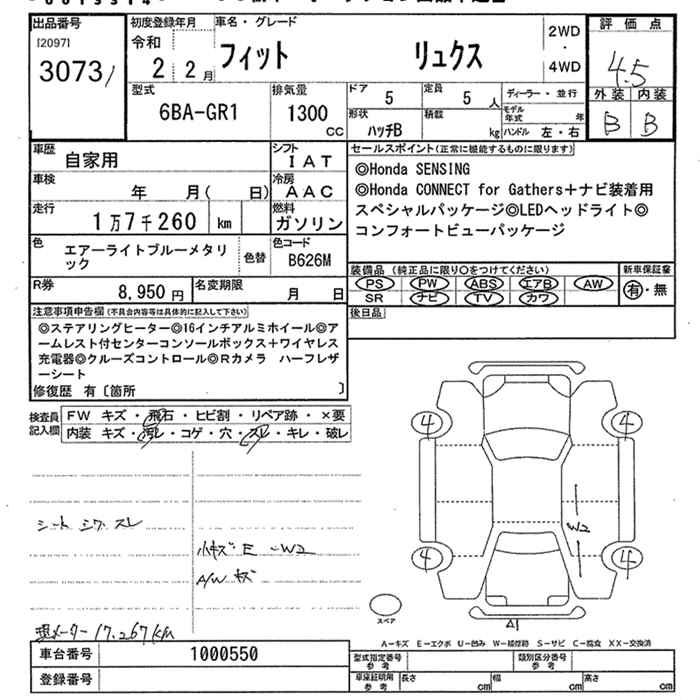 出品番号
[2097]
3073/
初度登録年月
令和
2 2月
車名・グレード
フィット リュクス
2WD
・
4WD
評価点
4.5
外装 内装
B B
型式
6BA-GR1
排気量
1300
cc
ドア
5
定員
5 人
ディーラー・並行
形状
ハッチB
積載
kg
モデル年式 年
ハンドル 左・右
車歴
自家用
シフト
IAT
車検
年 月( 日)
冷房
AAC
走行
1万7千260 km
燃料
ガソリン
色
エアーライトブルーメタリ
ック
色替
色コード
B626M
R券
8,950 円
名変期限
月 日
セールスポイント(正常に機能するものに限ります)
◎Honda SENSING
◎Honda CONNECT for Gathers+ナビ装着用
スペシャルパッケージ◎LEDヘッドライト◎
コンフォートビューパッケージ
装備品 (純正品に限り○をつけてください)
PS PW ABS エアB AW
SR ナビ TV カワ
新車保証書
有・無
後日品
注意事項申告欄(不具合内容等は具体的に記入して下さい)
◎ステアリングヒーター◎16インチアルミホイール◎ア
ームレスト付センターコンソールボックス+ワイヤレス
充電器◎クルーズコントロール◎Rカメラ ハーフレザ
ーシート
修復歴 有〔箇所 〕
検査員
記入欄
FW キズ・飛石・ヒビ割・リペア跡・×要
内装 キズ・汚レ・コゲ・穴・スレ・キレ・破レ
シート シワ スレ
小キズ E -W2
A/W キズ
メーター 17,267km
4 4
4 4
W2
スペア
A1
A-キズ E-エクボ U-凹み W-補修跡 S-サビ C-腐食 XX-交換済
車台番号
1000550
登録番号
型式指定番号
参考
類別区分番号
参考
車庫証明用
参考
長さ cm
幅 cm
高さ cm